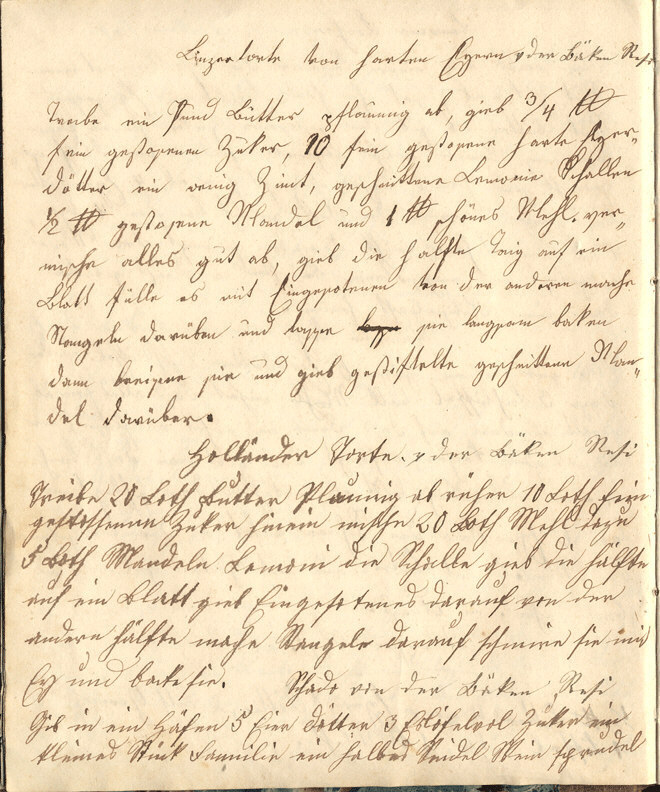 Linzertorte von harten Eyern v der Bäken Resi
Treibe ein Pfund Butter pflaumig ab, gieb 3/4 ℔
fein gestosenen Zuker, 10 fein gestosene harte Eyer„
dötter ein wenig Zimt, geschnittene Lemonie Schallen
1/2 ℔ gestosene Mandel und 1 ℔ schönes Mehl, ver„
mische alles gut ab, gieb die halfte Taig auf ein
Blatt fülle es mit Eingesotenen von der anderen mache
Stangeln darüben und lasse sie langsam baken
dann bereise sie und gieb gestiftelte geschnittene Man„
del darüber.
Holländer Torte. v der Bäken Resi
Treibe 20 Loth Butter Plaumig ab rüher 10 Loth fein
gestossenen Zuker hinein mische 20 Loth Mehl dazu
5 Loth Mandeln Lemoni die Schalle gieb die hälfte
auf ein Blatt gieb Eingesotenes darauf von der
andern hälfte mache Stangeln darauf schmire sie mit
Ey und backe sie. Schado von der Bäken Resi
Gib in ein Häfen 5 Eier dötter 3 Eßlöfelvol Zuker ein
kleines Stück Familie ein halbes Seidel Wein sprudel